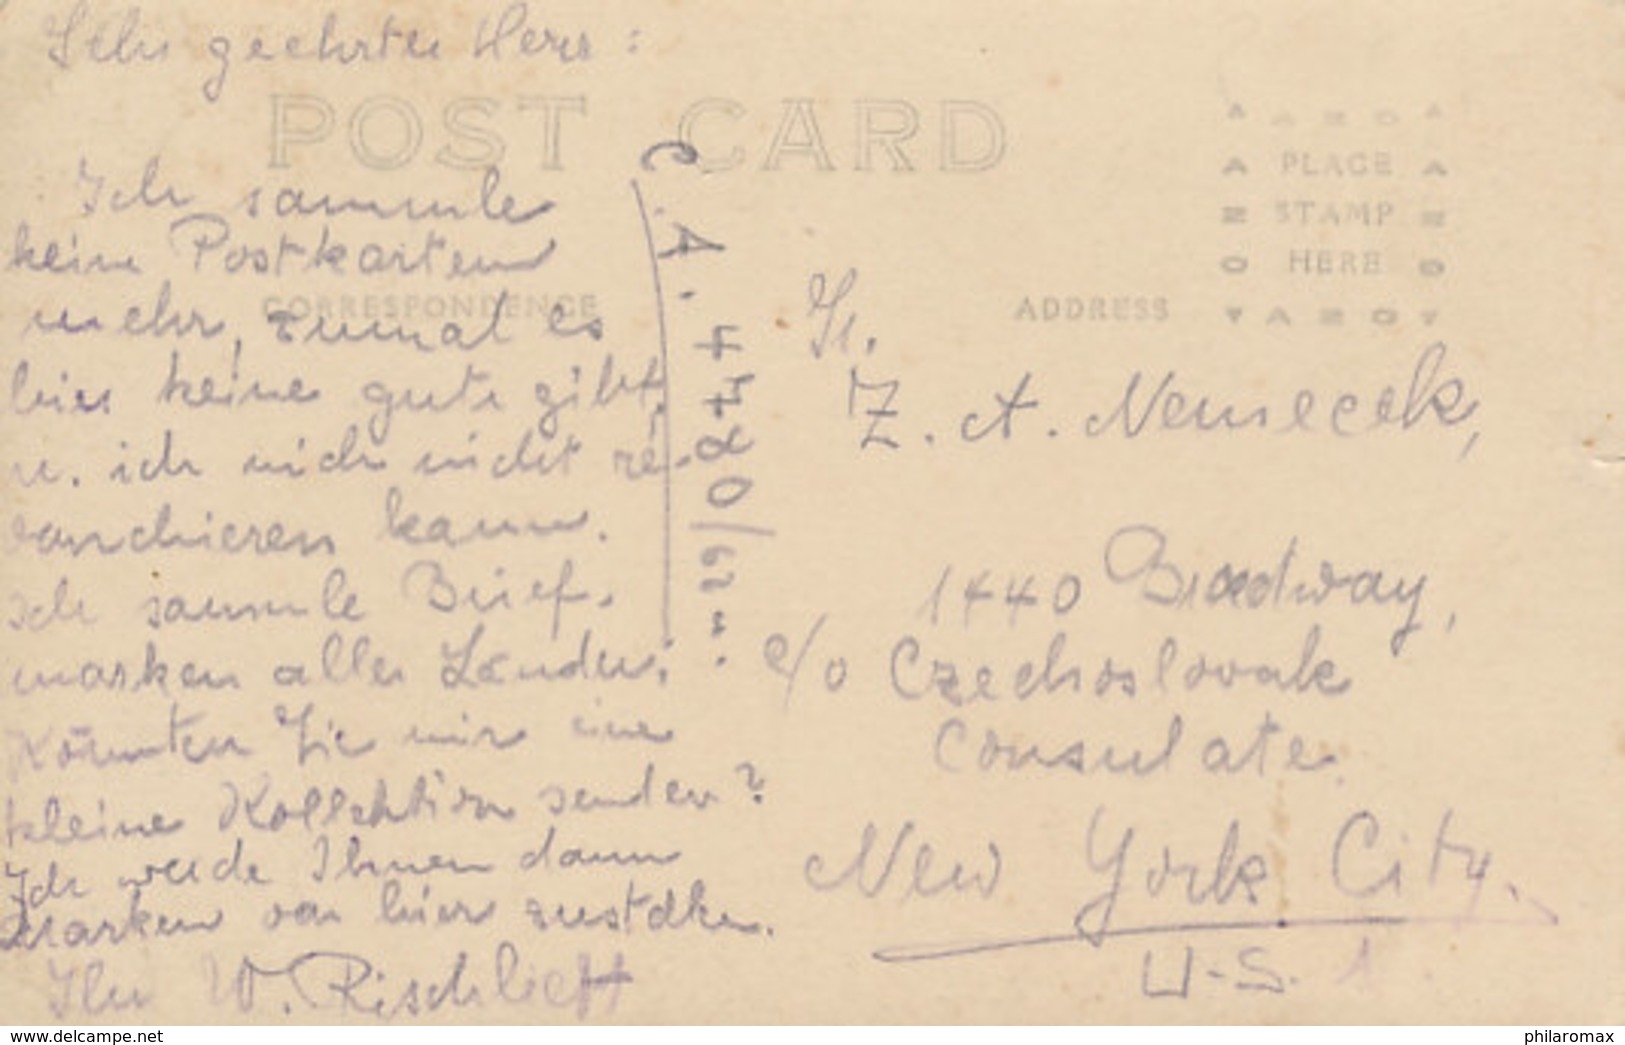 Sehr geehrter Herr:
POST CARD
AZO
PLACE
STAMP
HERE
AZO
CORRESPONDENCE
ADDRESS
Ich sammle
keine Postkarten
mehr, zumal es
hier keine gute gibt,
u. ich mich nicht re-
vanchieren kann.
Ich sammle Brief-
marken aller Länder.
Könnten Sie mir eine
kleine Kollektion senden?
Ich werde Ihnen dann
Marken von hier
Ihr W. Rischbieth
Z. A. Nemecek,
1440 Broadway,
c/o Czechoslovak
Consulate.
New York City.
U.S.A.
www.delcampe.net
philaromax